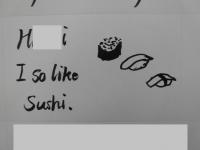 I so like
Sushi.